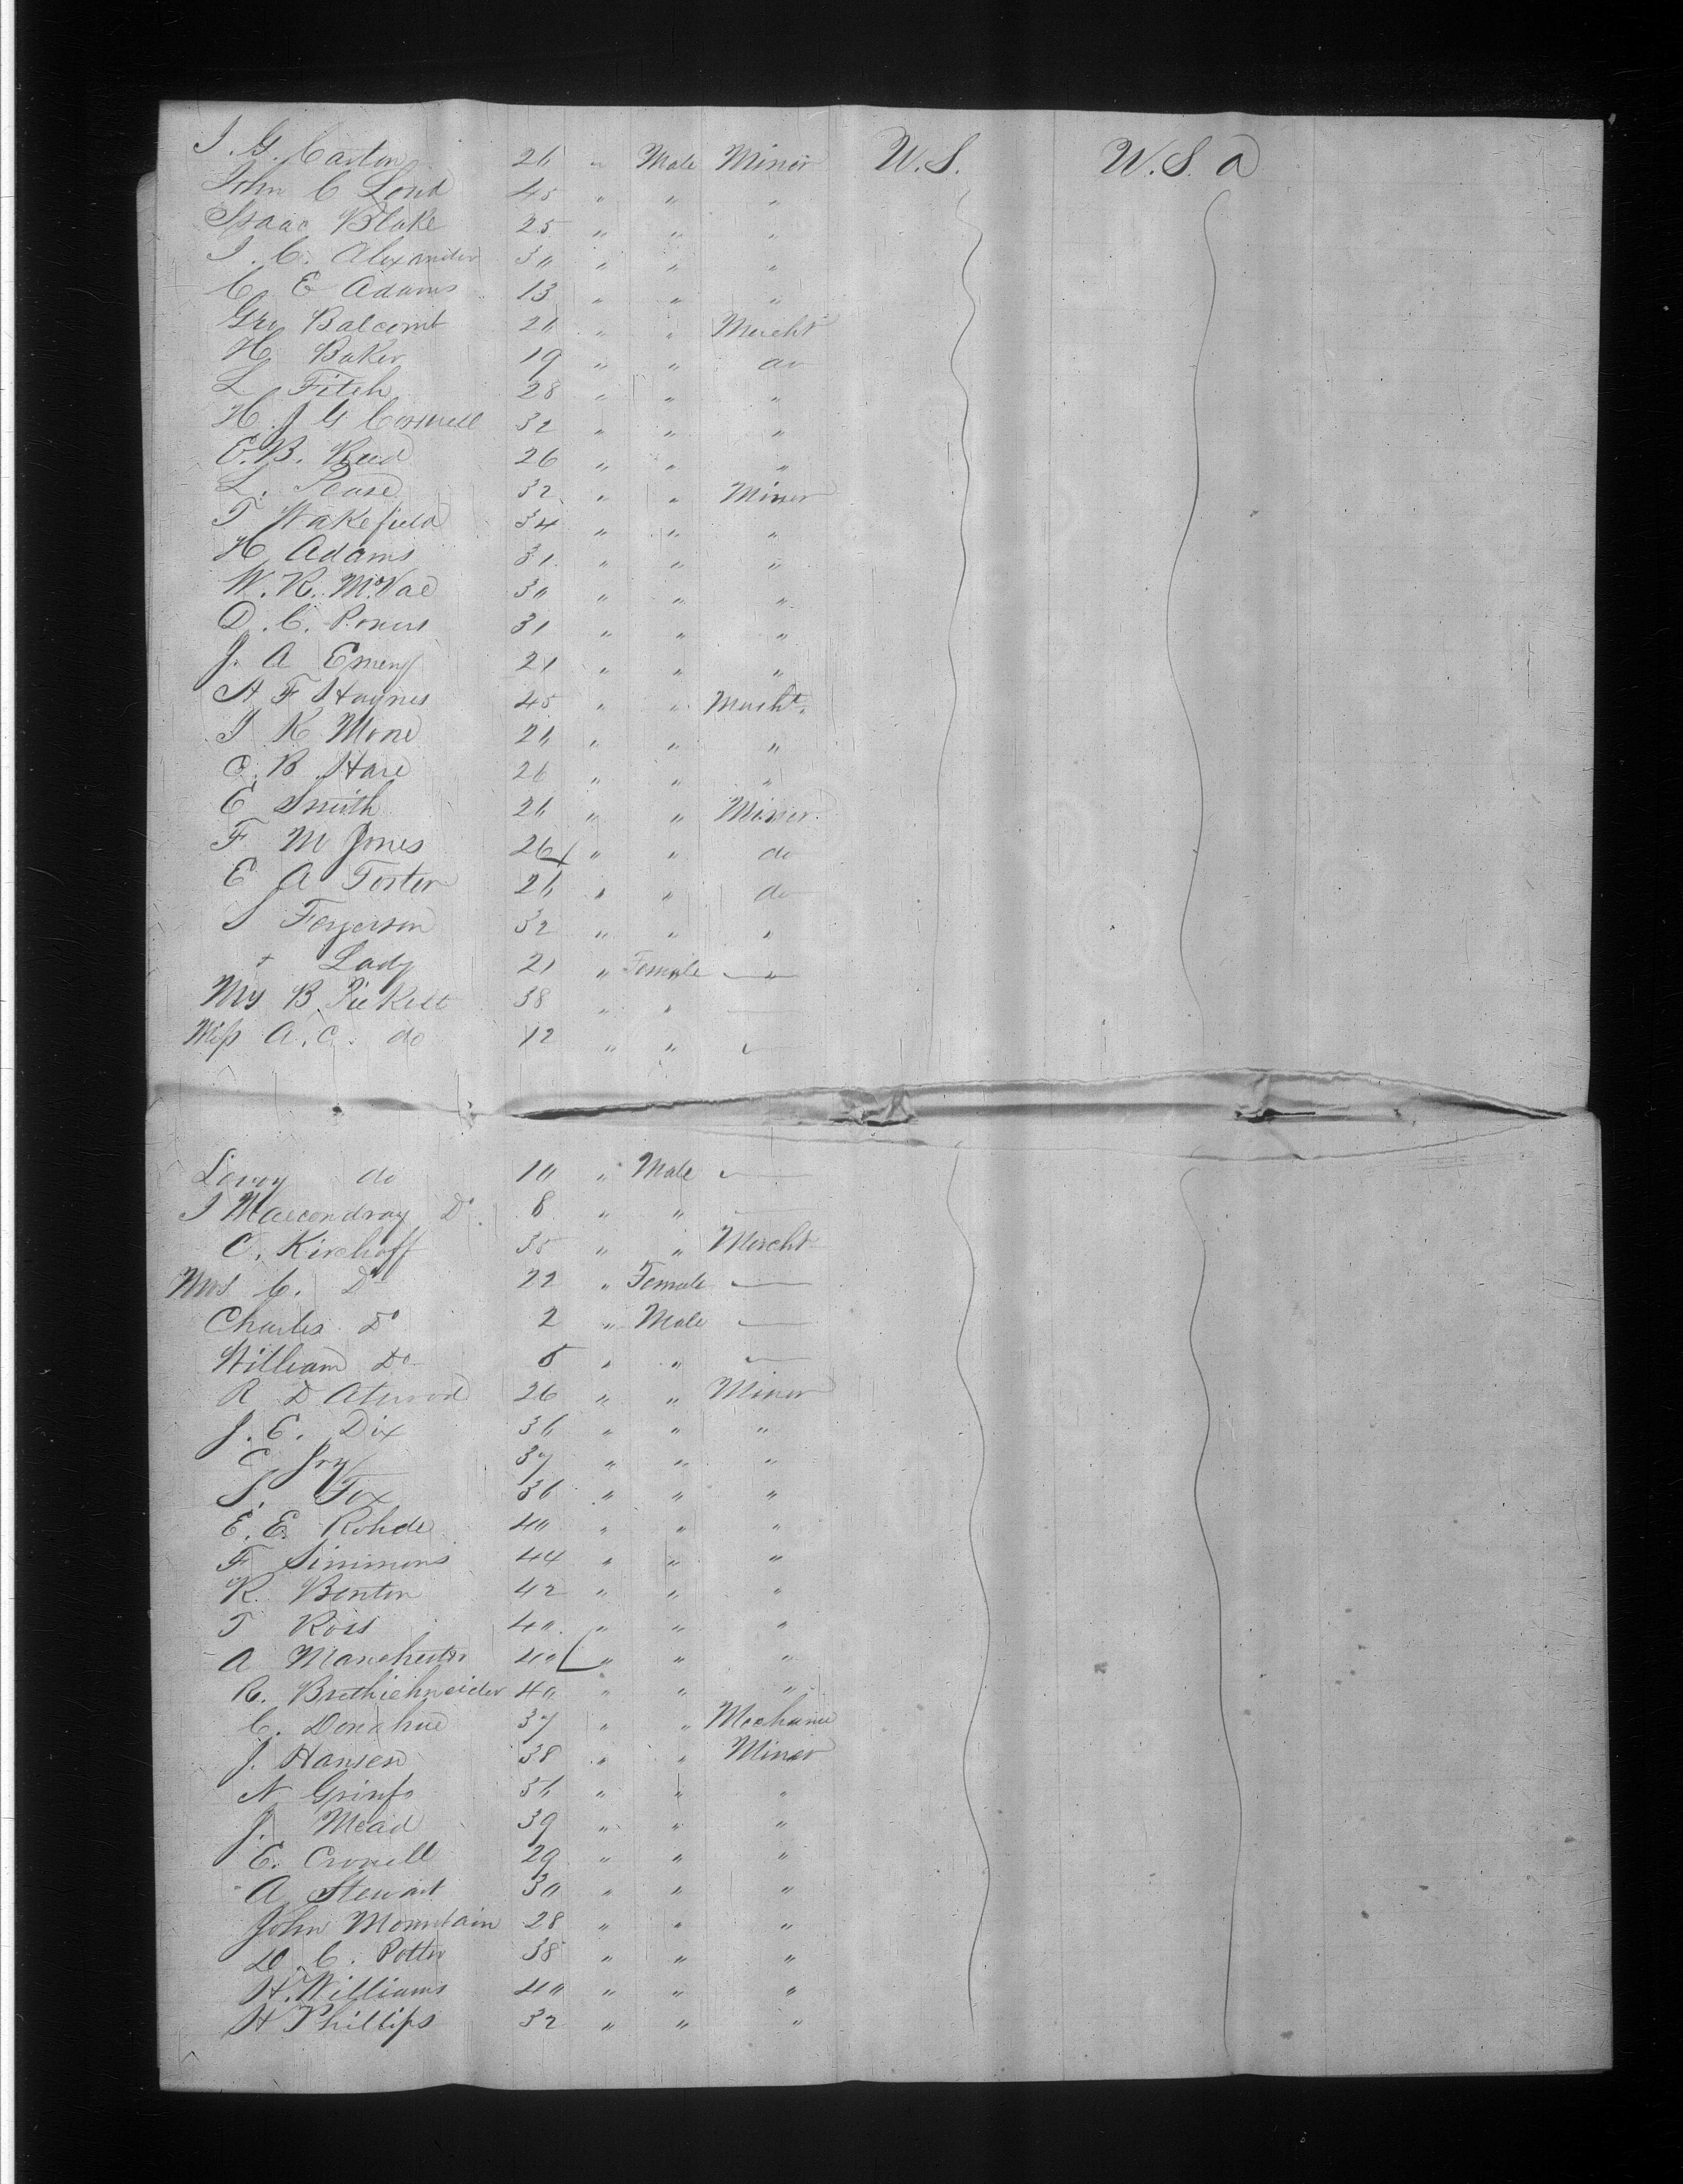 J. G. Carton 26 " Male Miner U.S. U.S. a
John C Loud 45 " " "
Isaac Blake 25 " " "
J. C. Alexander 30 " " "
C E Adams 13 " " "
Geo Balcomb 26 " " Mercht
H. Baker 19 " " do
L Fitch 28 " " "
H. J G 32 " " "
E. B. Reed 26 " " "
L. Pease 32 " " Miner
T Wakefield 34 " " "
H Adams 31 " " "
W. R. 30 " " "
D. C. Powers 31 " " "
J. A Emery 21 " " "
A F Haynes 45 " " Mercht.
J K 26 " " "
O. B Hare 26 " " "
E Smith 26 " " Miner.
F M Jones 26 " " do
E A Foster 26 " " do
S Fergerson 32 " " "
+ Lady 21 " Female "
Mrs B Pickett 38 " " —
Miss A. C. do 12 " " —
Leroy do 10 " Male —
J Maccondray Do. 8 " " —
C. Kirchoff 35 " " Mercht
Mrs C. Do 22 " Female —
Charles Do 2 " Male —
William Do 5 " " —
R D Atwood 26 " " Miner
J. E. Dix 36 " " "
C. 37 " " "
S. Fox 36 " " "
E. E. Rohde 40 " " "
F Simmons 44 " " "
R. Benton 42 " " "
T Ross 40 " " "
A Manchester 40 " " "
R. Brethichneider 40 " " "
C. Donahue 37 " " Mechanic
J. Hansen 38 " " Miner
N 36 " " "
J. Mead 39 " " "
E. Crowell 29 " " "
A Stewart 30 " " "
John Mountain 28 " " "
D. C. Potter 38 " " "
H. Williams 40 " " "
H Phillips 32 " " "